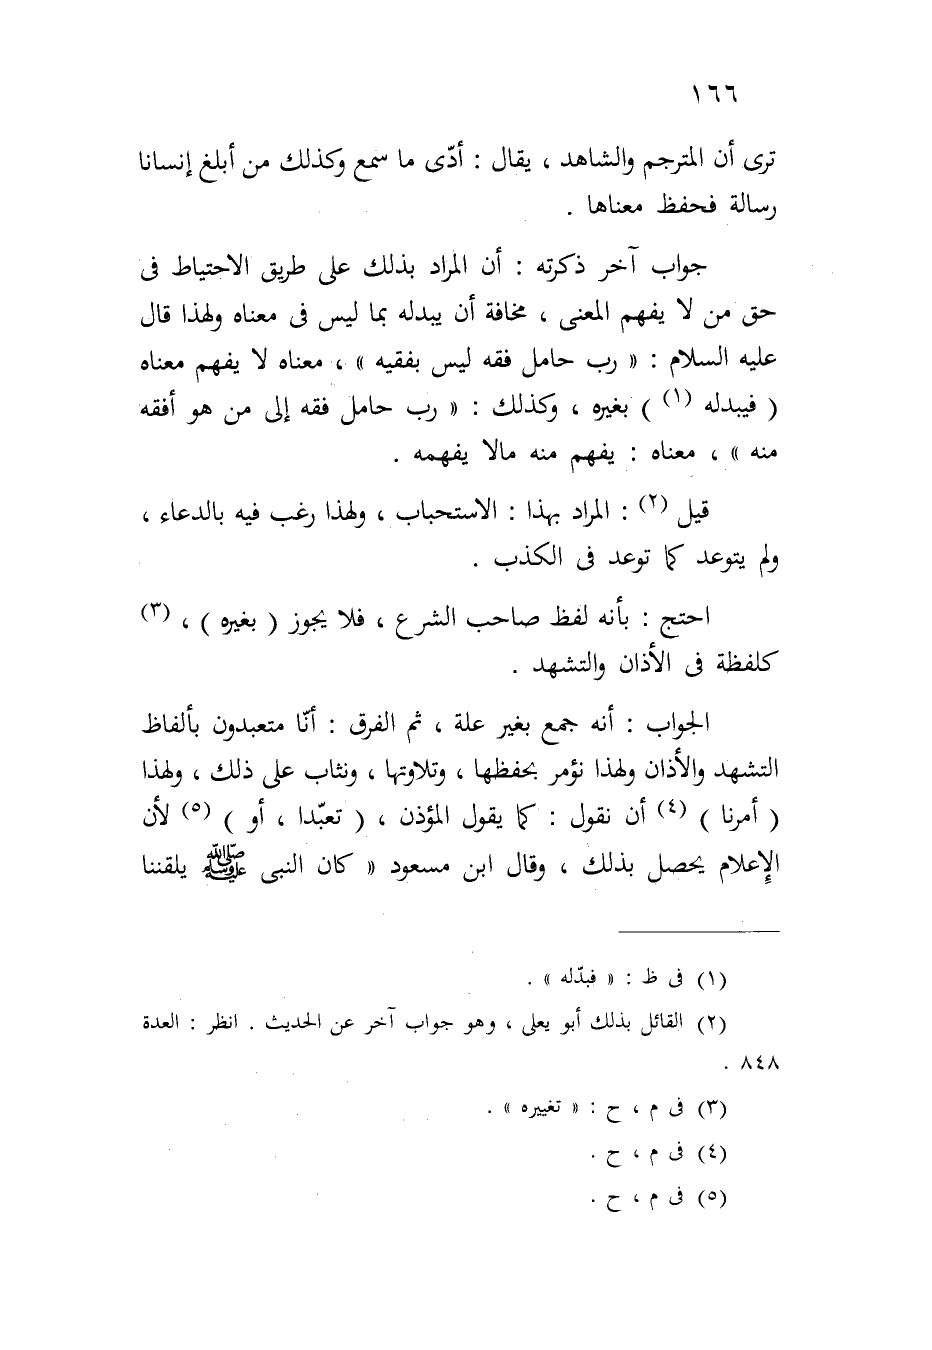 ١٦٦
ترى أن المترجم والشاهد ، يقال : أدّى ما سمع وكذلك من أبلغ إنسانا
رسالة فحفظ معناها .
جواب آخر ذكرته : أن المراد بذلك على طريق الاحتياط فى
حق من لا يفهم المعنى ، مخافة أن يبدله بما ليس فى معناه ولهذا قال
عليه السلام : « رب حامل فقه ليس بفقيه » ، معناه لا يفهم معناه
( فيبدله (١) ) بغيره ، وكذلك : « رب حامل فقه إلى من هو أفقه
منه » ، معناه : يفهم منه مالا يفهمه .
قيل (٢) : المراد بهذا : الاستحباب ، ولهذا رغب فيه بالدعاء ،
ولم يتوعد كما توعد فى الكذب .
احتج : بأنه لفظ صاحب الشرع ، فلا يجوز ( بغيره ) ، (٣)
كلفظة فى الأذان والتشهد .
الجواب : أنه جمع بغير علة ، ثم الفرق : أنّا متعبدون بألفاظ
التشهد والأذان ولهذا نؤمر بحفظها ، وتلاوتها ، ونثاب على ذلك ، ولهذا
( أمرنا ) (٤) أن نقول : كما يقول المؤذن ، ( تعبّدا ، أو ) (٥) لأن
الإعلام يحصل بذلك ، وقال ابن مسعود « كان النبى ﷺ يلقننا
(١) فى ظ : « فبدّله » .
(٢) القائل بذلك أبو يعلى ، وهو جواب آخر عن الحديث . انظر : العدة
٨٤٨ .
(٣) فى م ، ح : « تغييره » .
(٤) فى م ، ح .
(٥) فى م ، ح .